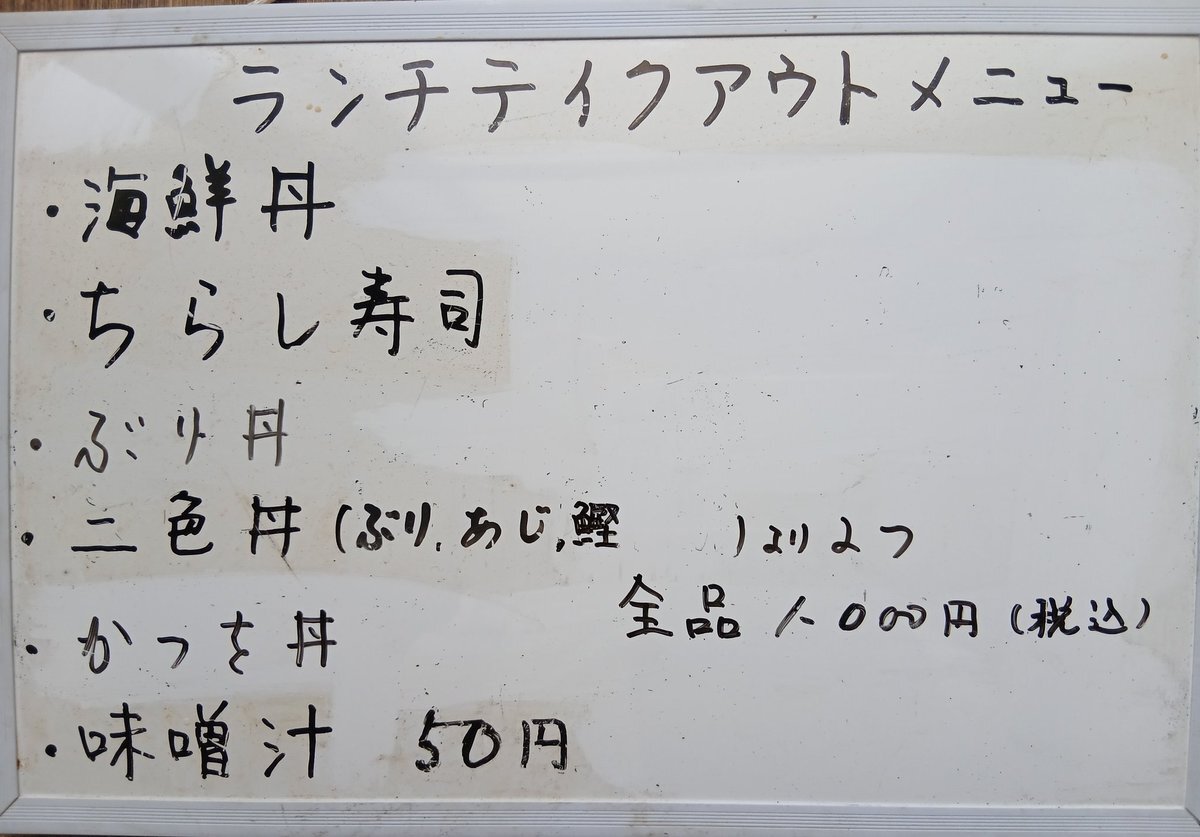 ランチテイクアウトメニュー
・海鮮丼
・ちらし寿司
・ぶり丼
・二色丼(ぶり、あじ,鰹 )より2つ
全品 1,000円(税込)
・かつを丼
・味噌汁 50円